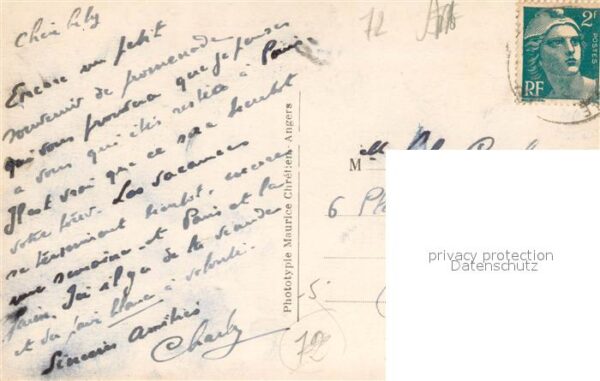 Chère Lily
Encore un petit
souvenir de promenade
qui vous prouvera que je pense
à vous qui êtes restée à Paris
Il est vrai que ce sera bientôt
votre tour. Les vacances
se terminent bientôt. encore
une semaine et Paris et la
Ici il y a de la
et du pain blanc à volonté.
Sincères Amitiés
Charly
Phototypie Maurice Chrétien, Angers
72
2F
POSTES
RF
M elle
6 Pl
5
72
privacy protection
Datenschutz